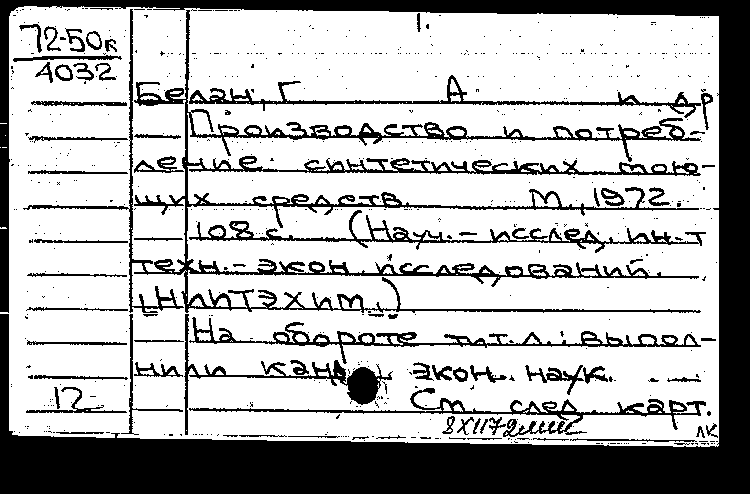 1.
72-50к
4032
Белан, Г А и др
Производство и потреб-
ление синтетических мою-
щих средств. М., 1972.
108 с. (Науч.-исслед. ин-т
техн.-экон. исследований.
"НИИТЭХИМ")
На обороте тит. л.: выпол-
нили канд. экон. наук.
12 См. след. карт.
ЛК